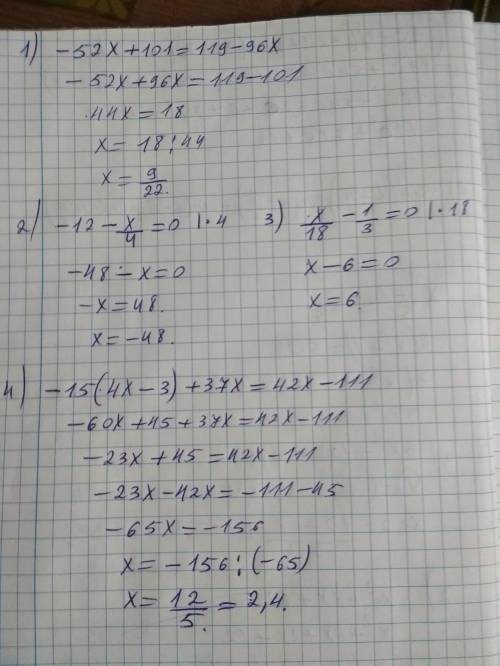 1) -52x+101=119-96x
-52x+96x=119-101
44x=18
x= 18:44
x= 9/22.
2) -12-x/4=0 |·4
-48-x=0
-x=48.
x=-48.
3) x/18-1/3=0 |·18
x-6=0
x=6.
4) -15(4x-3)+37x=42x-111
-60x+45+37x=42x-111
-23x+45=42x-111
-23x-42x=-111-45
-65x=-156
x=-156:(-65)
x=12/5.=2,4.